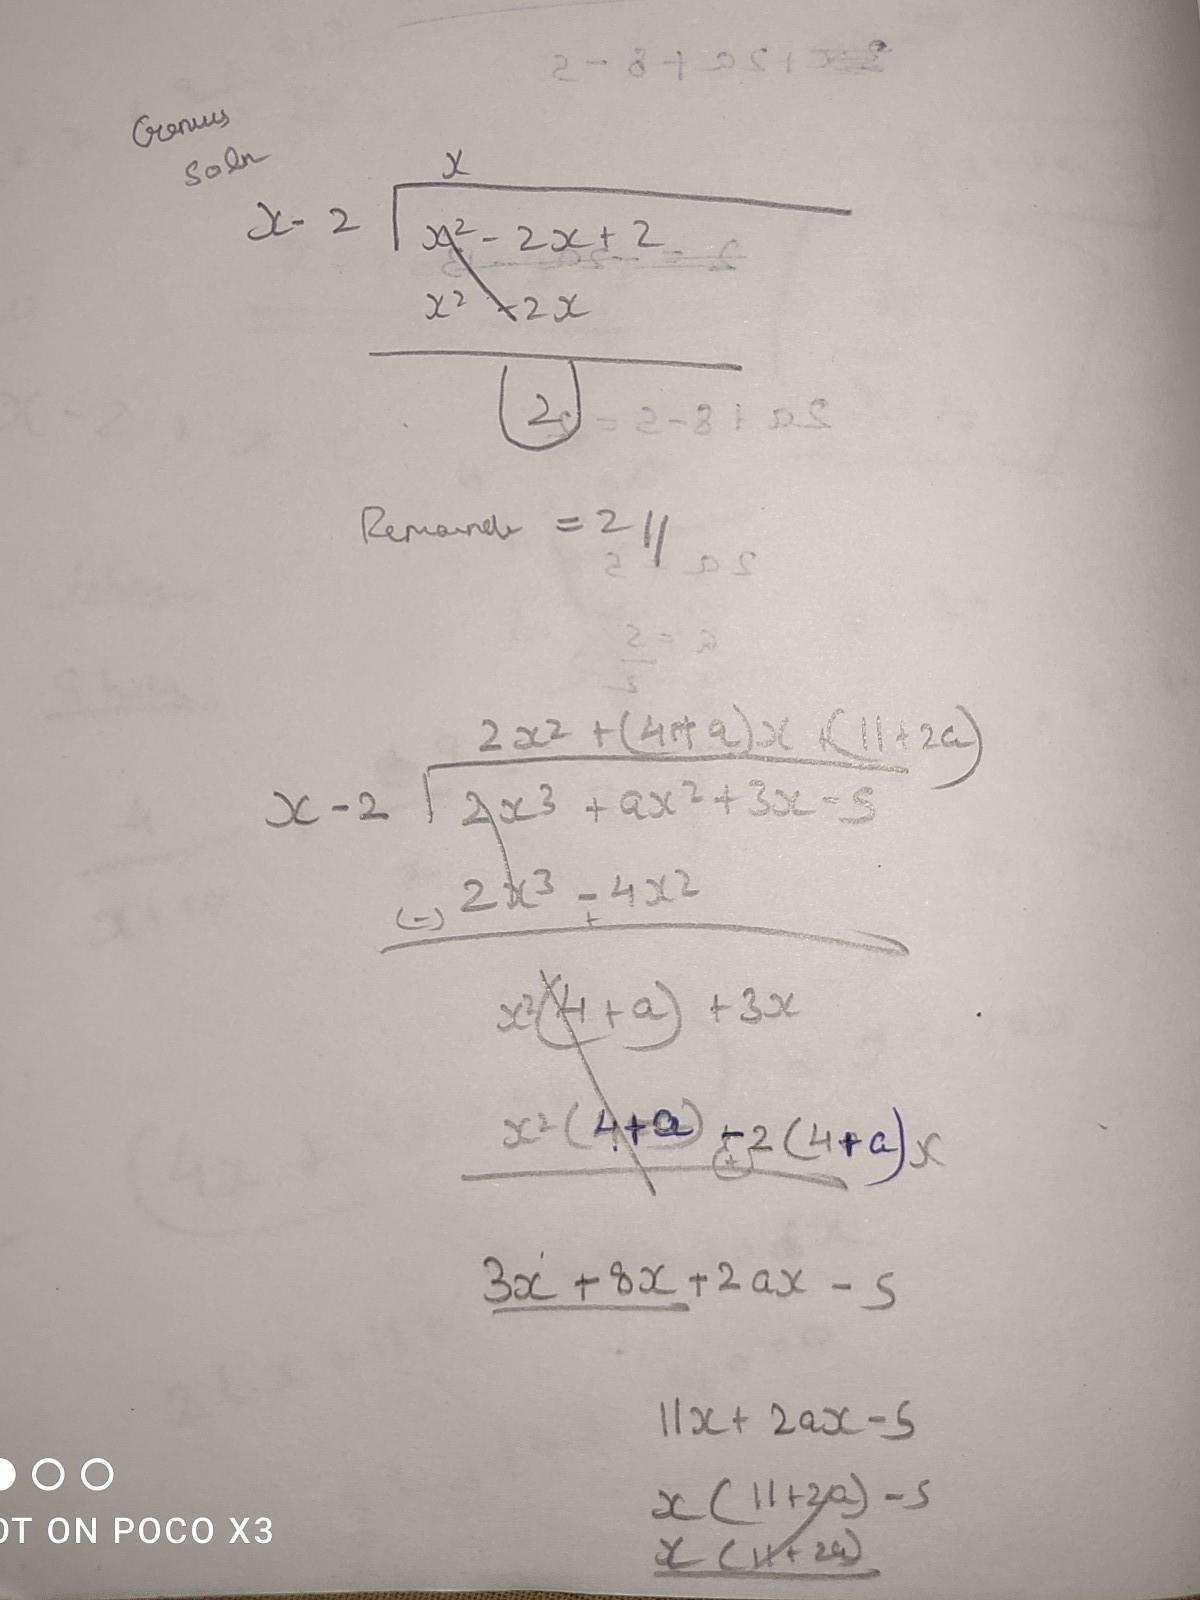 Genius
Soln
x
x - 2 x² - 2x + 2
x² - 2x
2
Remainde = 2 //
2x² + (4 + a)x + (11 + 2a)
x - 2 2x³ + ax² + 3x - 5
(-) 2x³ - 4x²
+
x²(4 + a) + 3x
x²(4 + a) - 2(4 + a)x
(+)
3x + 8x + 2ax - 5
11x + 2ax - 5
x(11 + 2a) - 5
x(11 + 2a)
OT ON POCO X3